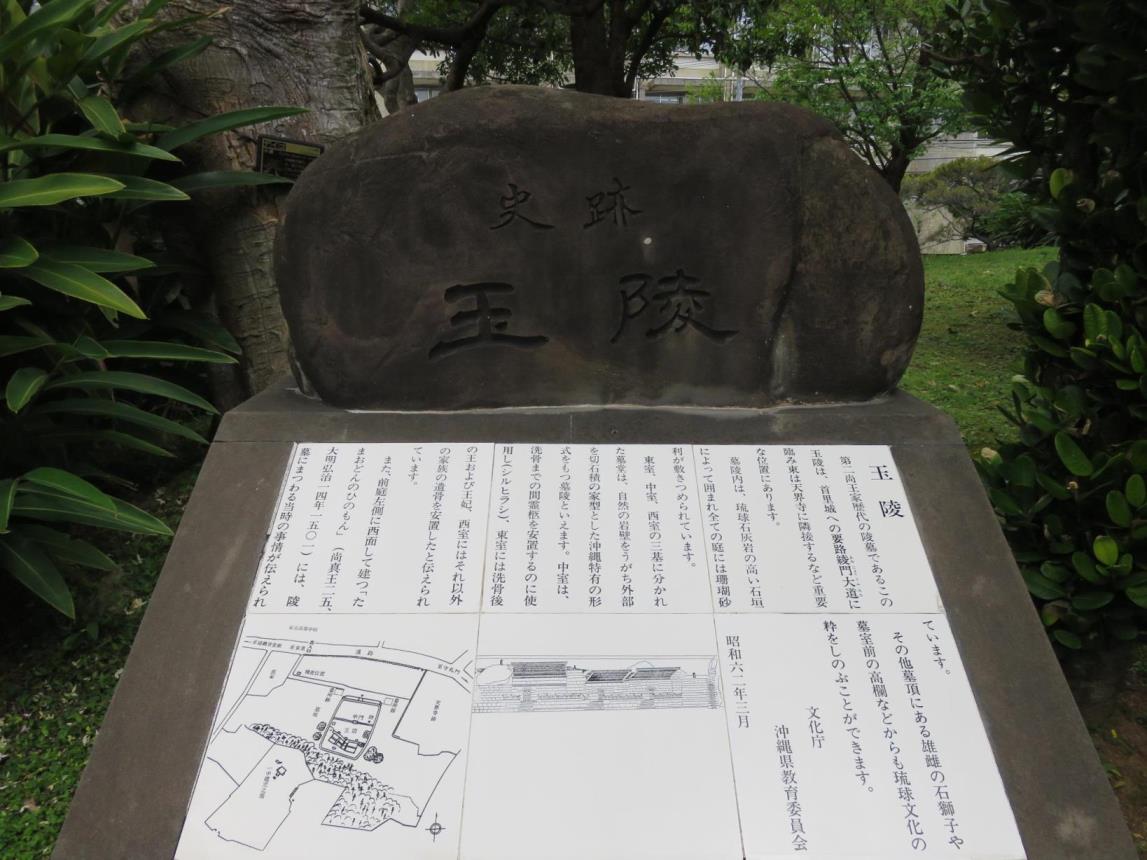 史跡
玉陵
玉陵
第二尚王家歴代の陵墓であるこの
玉陵は、首里城への要路綾門大道に
臨み東は天界寺に隣接するなど重要
な位置にあります。
墓陵内は、琉球石灰岩の高い石垣
によって囲まれ全ての庭には珊瑚砂
利が敷きつめられています。
東室、中室、西室の三基に分かれ
た墓堂は、自然の岩壁をうがち外部
を切石積の家型とした沖縄特有の形
式をもつ墓陵といえます。中室は、
洗骨までの間霊柩を安置するのに使
用し(シルヒラシ)、東室には洗骨後
の王および王妃、西室にはそれ以外
の家族の遺骨を安置したと伝えられ
ています。
また、前庭左側に西面して建つ「た
まおどんのひのもん」(尚真王二五、
大明弘治一四年・一五〇一)には、陵
墓にまつわる当時の事情が伝えられ
ています。
その他墓頂にある雄雌の石獅子や
墓室前の高欄などからも琉球文化の
粋をしのぶことができます。
文化庁
沖縄県教育委員会
昭和六二年三月
道路
至守礼門
中門
玉陵